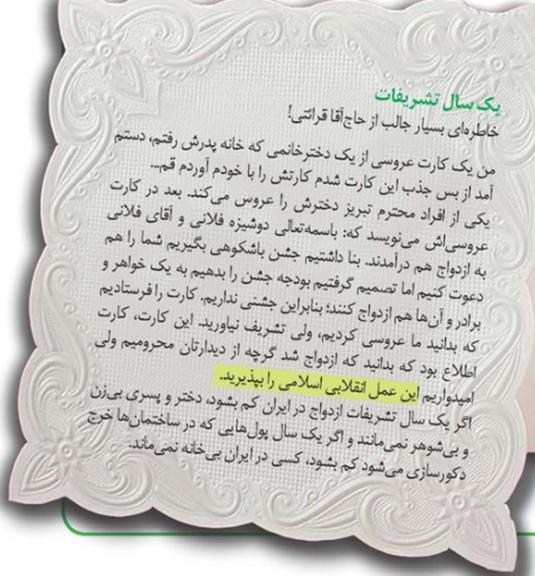 یک سال تشریفات
خاطره‌ای بسیار جالب از حاج‌آقا قرائتی!
من یک کارت عروسی از یک دخترخانمی که خانه پدرش رفتم، دستم
آمد از بس جذب این کارت شدم کارتش را با خودم آوردم قم...
یکی از افراد محترم تبریز دخترش را عروس می‌کند. بعد در کارت
عروسی‌اش می‌نویسد که: باسمه‌تعالی دوشیزه فلانی و آقای فلانی
به ازدواج هم درآمدند. بنا داشتیم جشن باشکوهی بگیریم شما را هم
دعوت کنیم اما تصمیم گرفتیم بودجه جشن را بدهیم به یک خواهر و
برادر و آن‌ها هم ازدواج کنند؛ بنابراین جشنی نداریم. کارت را فرستادیم
که بدانید ما عروسی کردیم، ولی تشریف نیاورید. این کارت، کارت
اطلاع بود که بدانید که ازدواج شد گرچه از دیدارتان محرومیم ولی
امیدواریم این عمل انقلابی اسلامی را بپذیرید.
اگر یک سال تشریفات ازدواج در ایران کم بشود، دختر و پسری بی‌زن
و بی‌شوهر نمی‌مانند و اگر یک سال پول‌هایی که در ساختمان‌ها خرج
دکورسازی می‌شود کم بشود، کسی در ایران بی‌خانه نمی‌ماند.